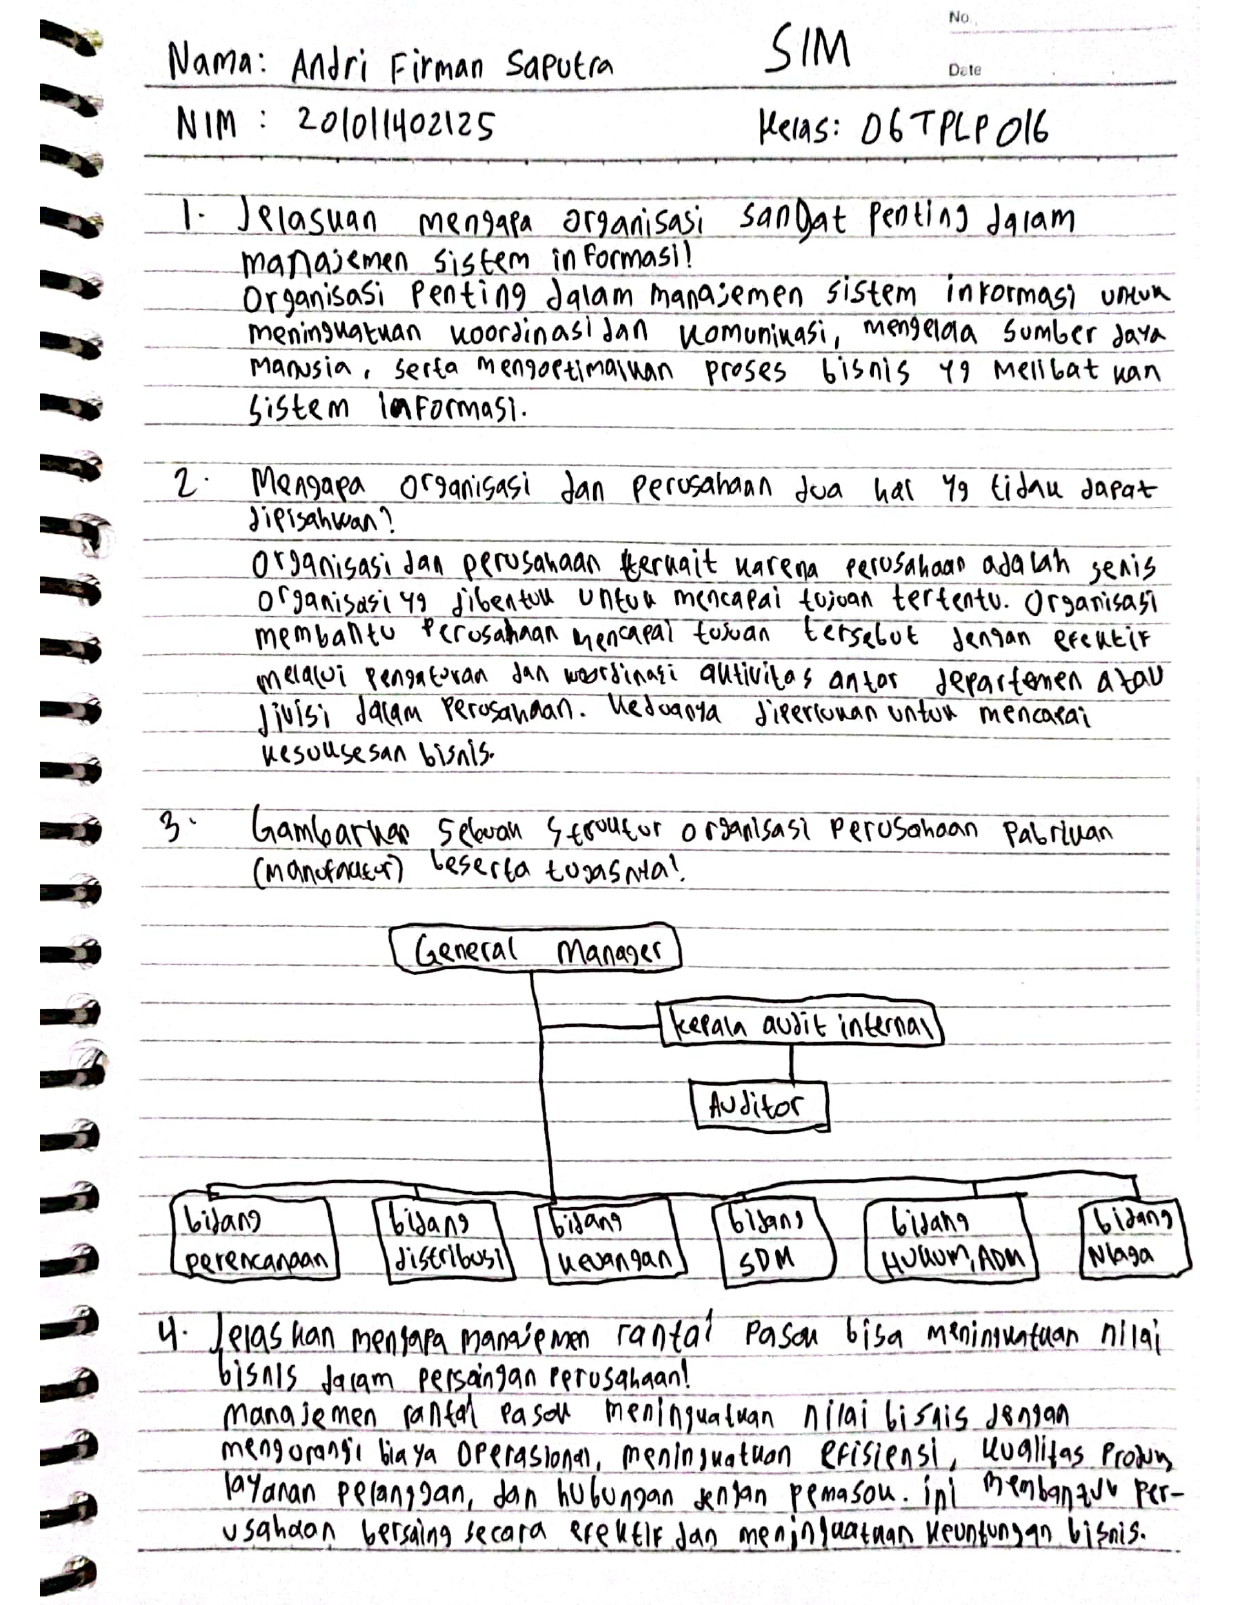 No.
SIM
Date
Nama: Andri Firman Saputra
NIM : 201011402125
Kelas: 06TPLP016
1. Jelaskan mengapa organisasi sangat penting dalam
manajemen sistem informasi!
Organisasi penting dalam manajemen sistem informasi untuk
meningkatkan koordinasi dan komunikasi, mengelola sumber daya
manusia, serta mengoptimalkan proses bisnis yg melibatkan
sistem informasi.
2. Mengapa organisasi dan perusahaan dua hal yg tidak dapat
dipisahkan?
Organisasi dan perusahaan terkait karena perusahaan adalah jenis
organisasi yg dibentuk untuk mencapai tujuan tertentu. Organisasi
membantu perusahaan mencapai tujuan tersebut dengan efektif
melalui pengaturan dan koordinasi aktivitas antar departemen atau
divisi dalam perusahaan. Keduanya diperlukan untuk mencapai
kesuksesan bisnis.
3. Gambarkan sebuah struktur organisasi perusahaan pabrikan
(manufaktur) beserta tugasnya!
General Manager
kepala audit internal
Auditor
bidang
perencanaan
bidang
distribusi
bidang
keuangan
bidang
SDM
bidang
HUKUM, ADM
bidang
Niaga
4. Jelaskan mengapa manajemen rantai pasok bisa meningkatkan nilai
bisnis dalam persaingan perusahaan!
manajemen rantai pasok meningkatkan nilai bisnis dengan
mengurangi biaya operasional, meningkatkan efisiensi, kualitas produk,
layanan pelanggan, dan hubungan dengan pemasok. ini membantu per-
usahaan bersaing secara efektif dan meningkatkan keuntungan bisnis.